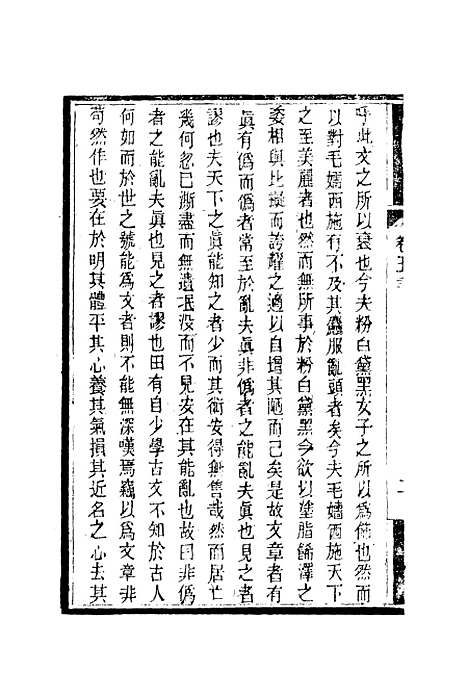 乎此文之所以衰也今夫粉白黛黑女子之所以爲俑也然而
以對毛嬙西施有不及其麤服亂頭者矣今夫毛嬙西施天下
之至美麗者也然而無所事於粉白黛黑今欲以塗脂餙澤之
委相與比擬而誇耀之適以自增其陋而已矣是故文章者有
眞有僞而僞者常至於亂夫眞非僞者之能亂夫眞也見之者
謬也夫天下之眞能知之者少而其衒安得無售哉然而居亡
幾何忽已澌盡而無遺珉没而不見安在其能亂也故曰非僞
者之能亂夫眞也見之者謬也田有自少學古文不知於古人
何如而於世之號能爲文者則不能無深嘆焉竊以爲文章非
苟然作也要在於明其體平其心養其氣損其近名之心去其
卷五
二